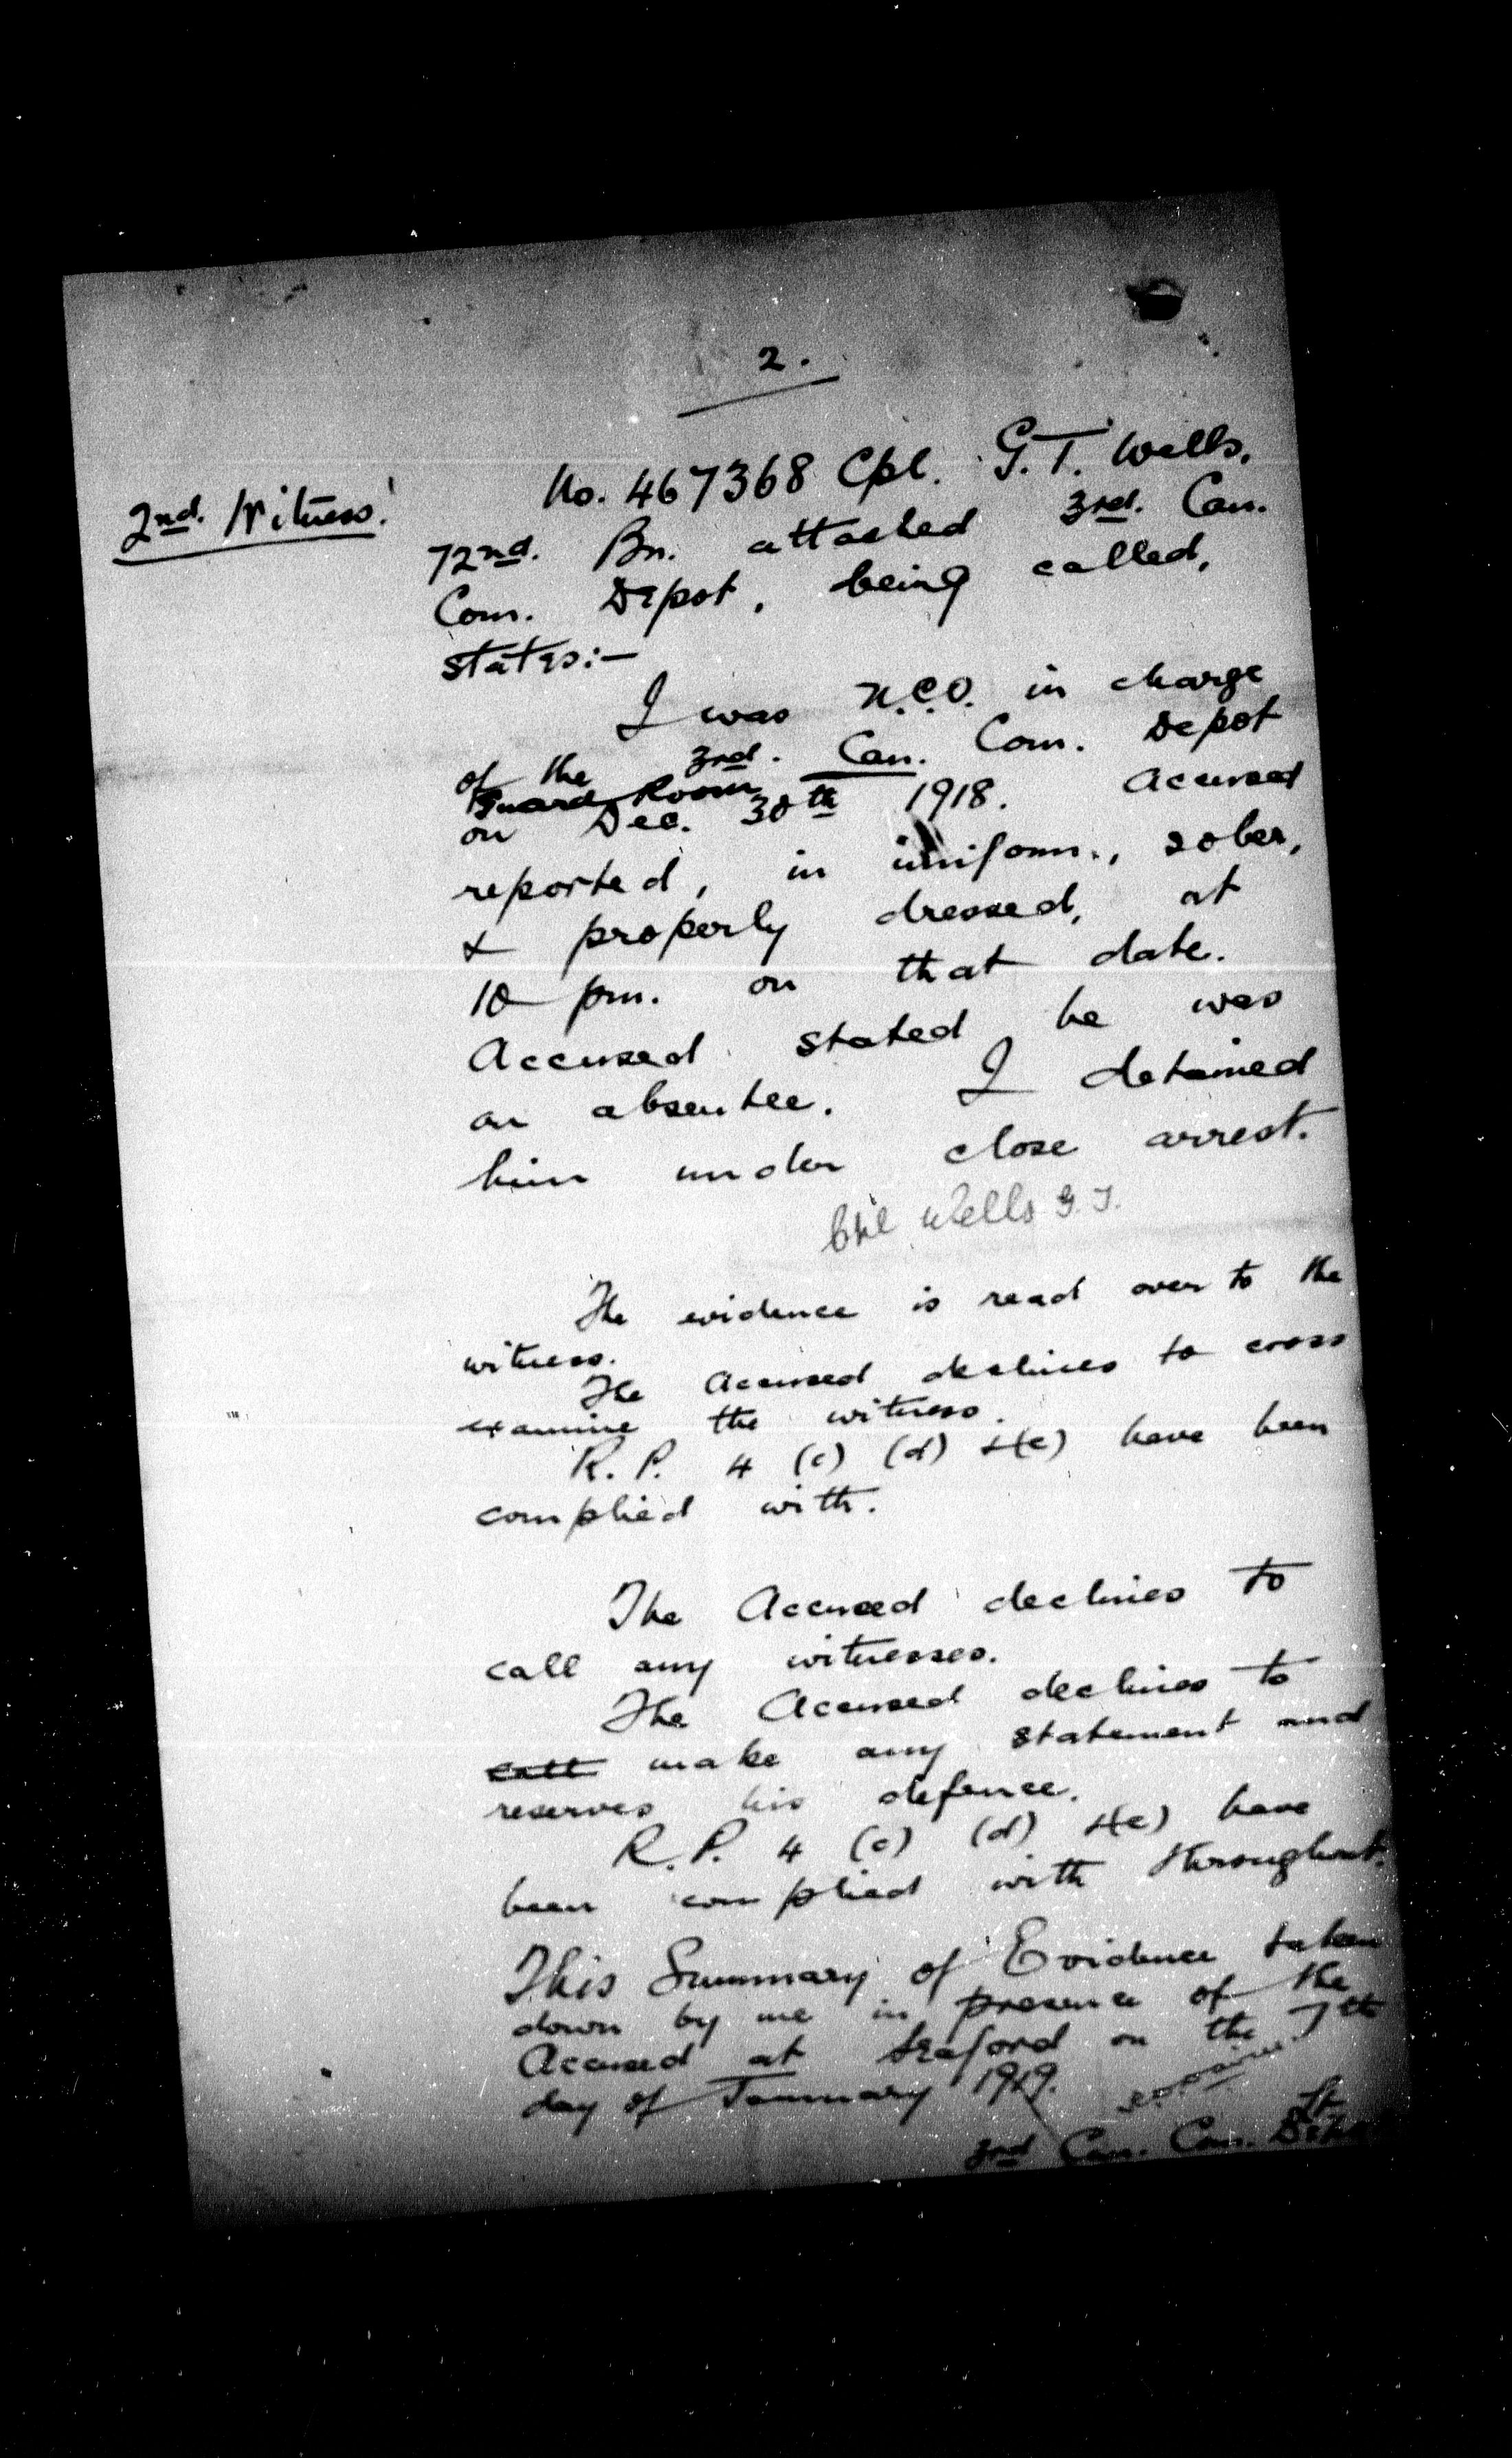 2.
2nd. Witness!
No. 467368 Cpl. G.T. Wells,
72nd. Bn. attached 3rd. Can.
Con. Depot, being called,
states:—
I was N.C.O. in charge
of the 3rd. Can. Con. Depot
Guard Room
on Dec. 30th 1918. Accused
reported, in uniform, sober,
& properly dressed, at
10 pm. on that date.
Accused stated he was
an absentee. I detained
him under close arrest.
Cpl Wells G.T.
The evidence is read over to the
witness.
The Accused declines to cross
examine the witness.
R.P. 4 (c) (d) & (e) have been
complied with.
The Accused declines to
call any witnesses.
The Accused declines to
call make any statement and
reserves his defence.
R.P. 4 (c) (d) & (e) have
been complied with throughout.
This Summary of Evidence taken
down by me in presence of the
Accused at Seaford on the 7th
day of January 1919.
Lt
3rd Can. Con. Depot